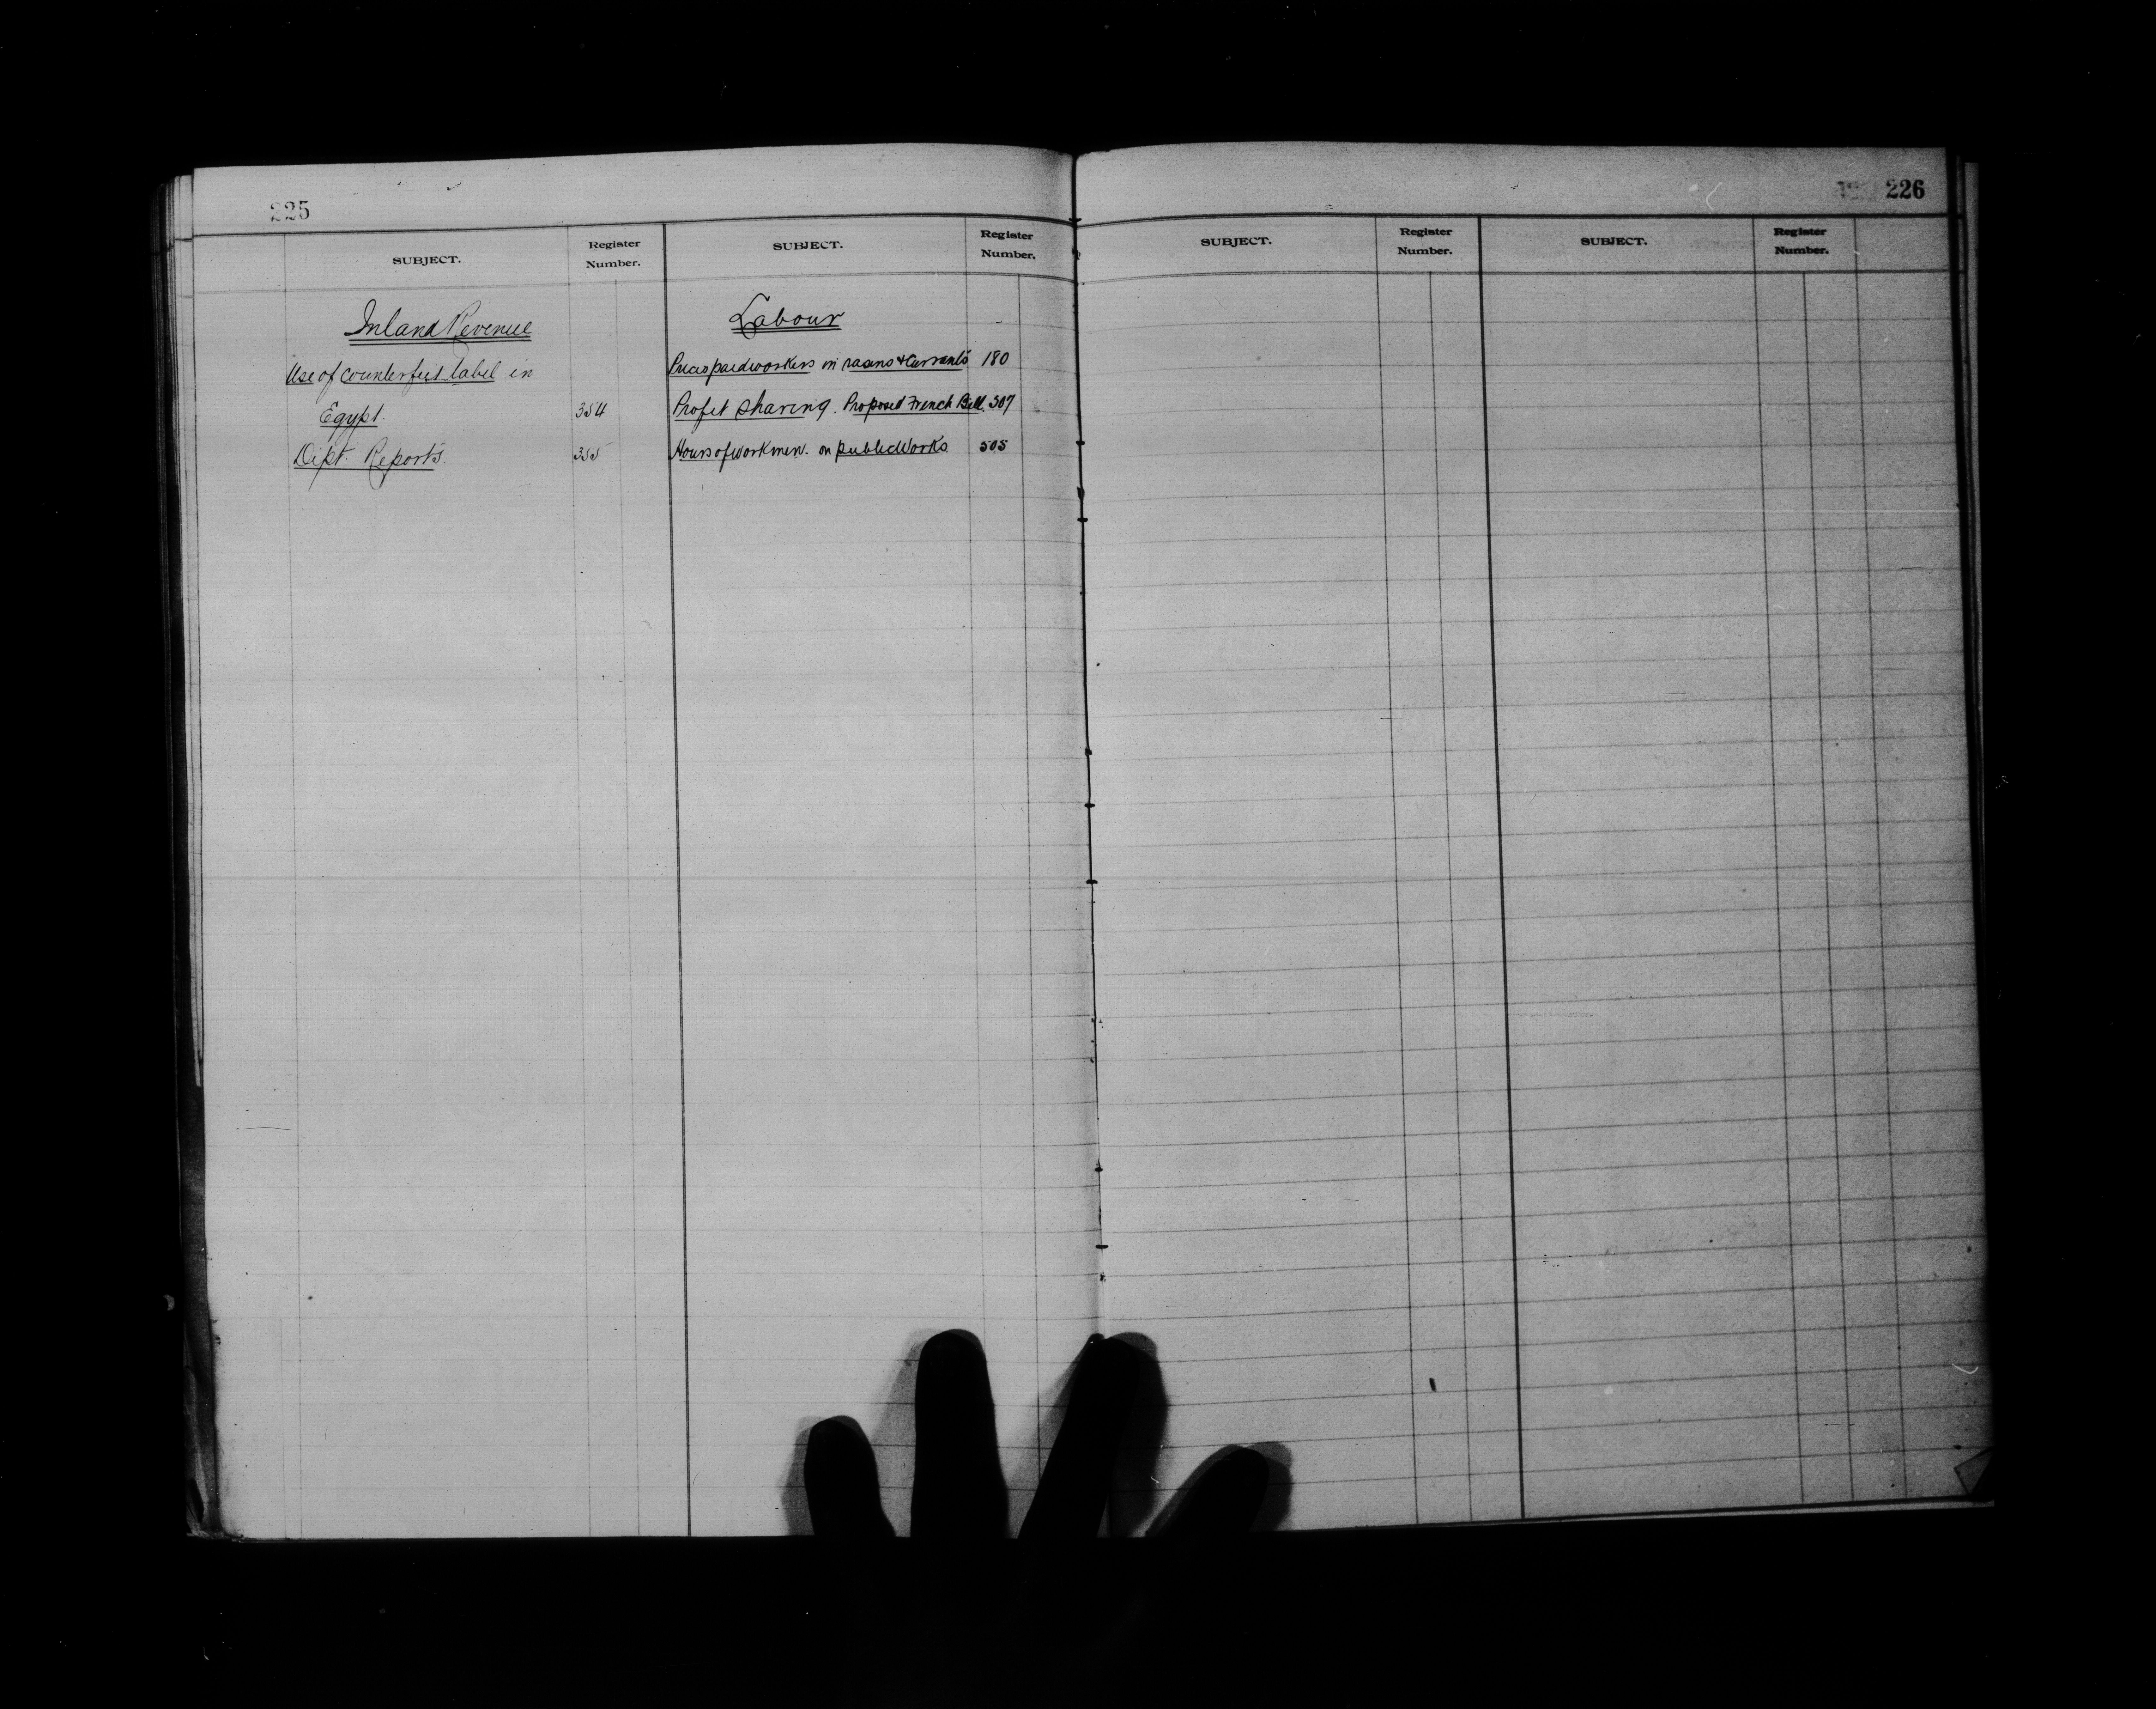 225
SUBJECT.
Register
Number.
SUBJECT.
Register
Number.
Inland Revenue
Use of counterfeit label in
Egypt. 354
Dept. Reports. 355
Labour
Prices paid workers in raisins & Currants 180
Profit sharing. Proposed French Bill. 307
Hours of workmen. on public Works 505
226
SUBJECT.
Register
Number.
SUBJECT.
Register
Number.